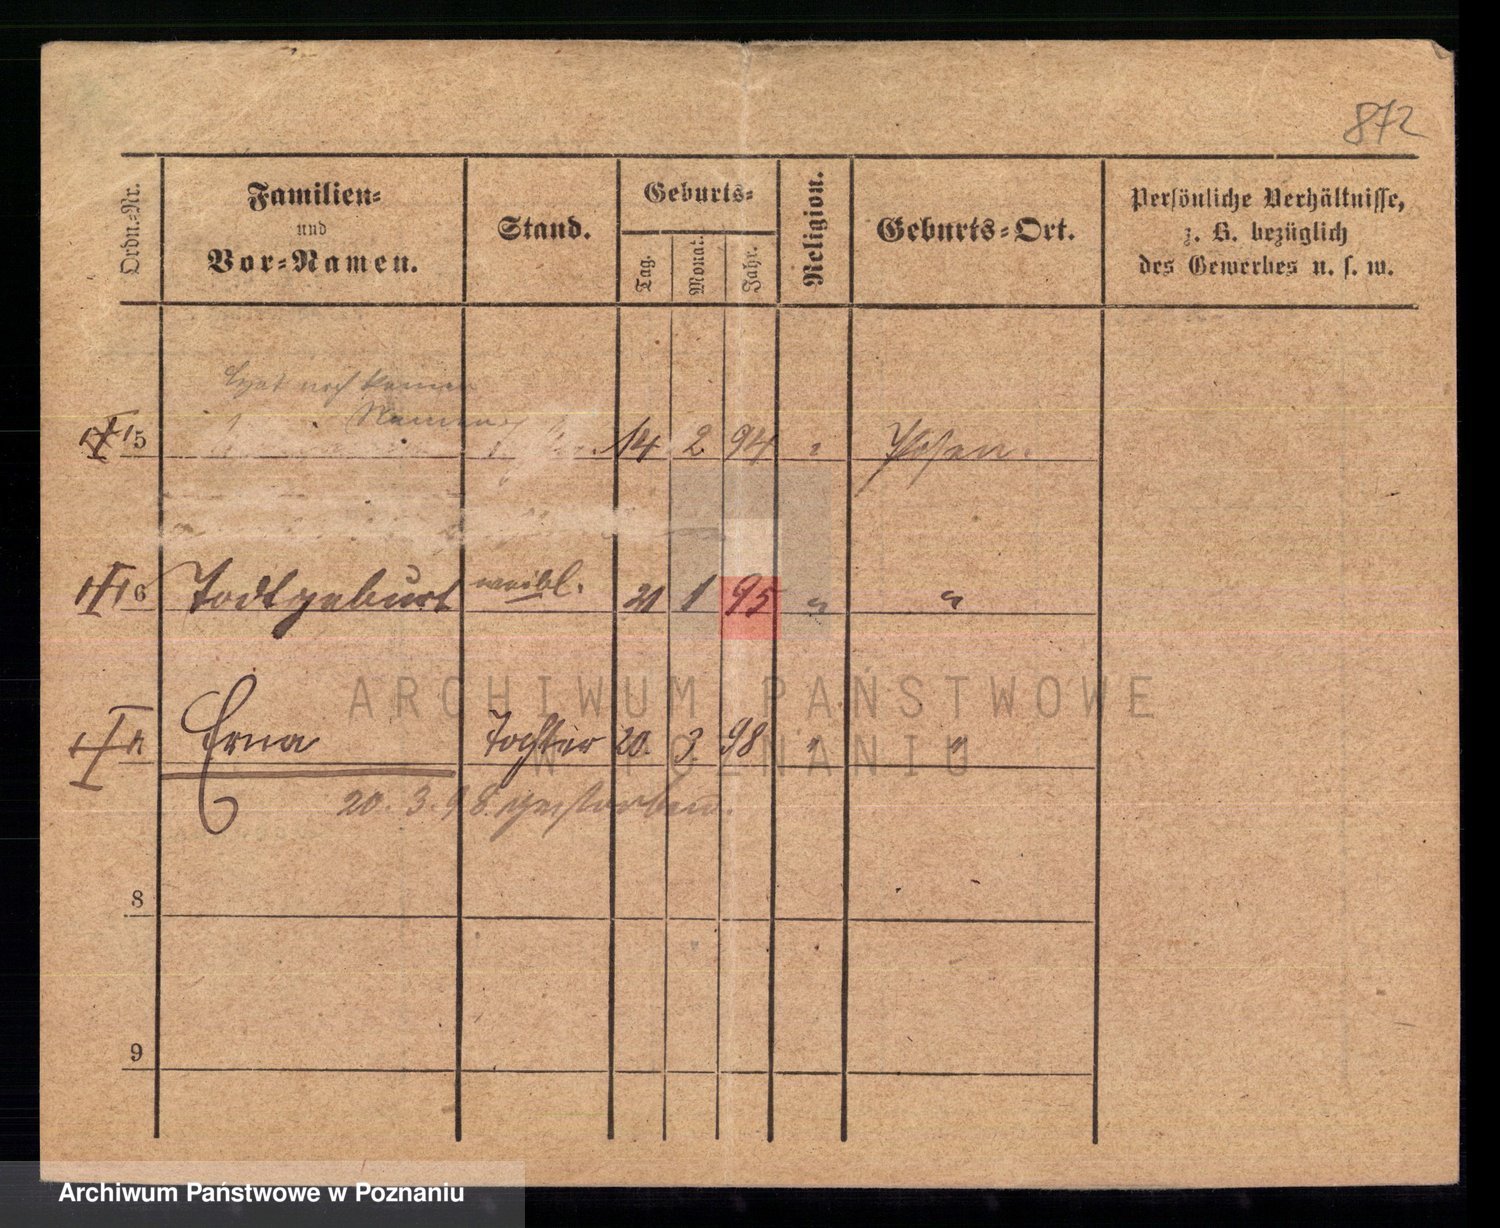 872
Ordn.-Nr.
Familien-
und
Vor-Namen.
Stand.
Geburts-
Tag.
Monat.
Jahr.
Religion.
Geburts-Ort.
Persönliche Verhältnisse,
z. B. bezüglich
des Gewerbes u. s. w.
hat noch keinen
Namen
5 14. 2 94 " Posen.
6 Todtgeburt weibl. 21 1 95 " "
Erna Tochter 20. 3. 98 " "
20. 3. 98. gestorben.
8
9
ARCHIWUM PAŃSTWOWE
W POZNANIU
Archiwum Państwowe w Poznaniu